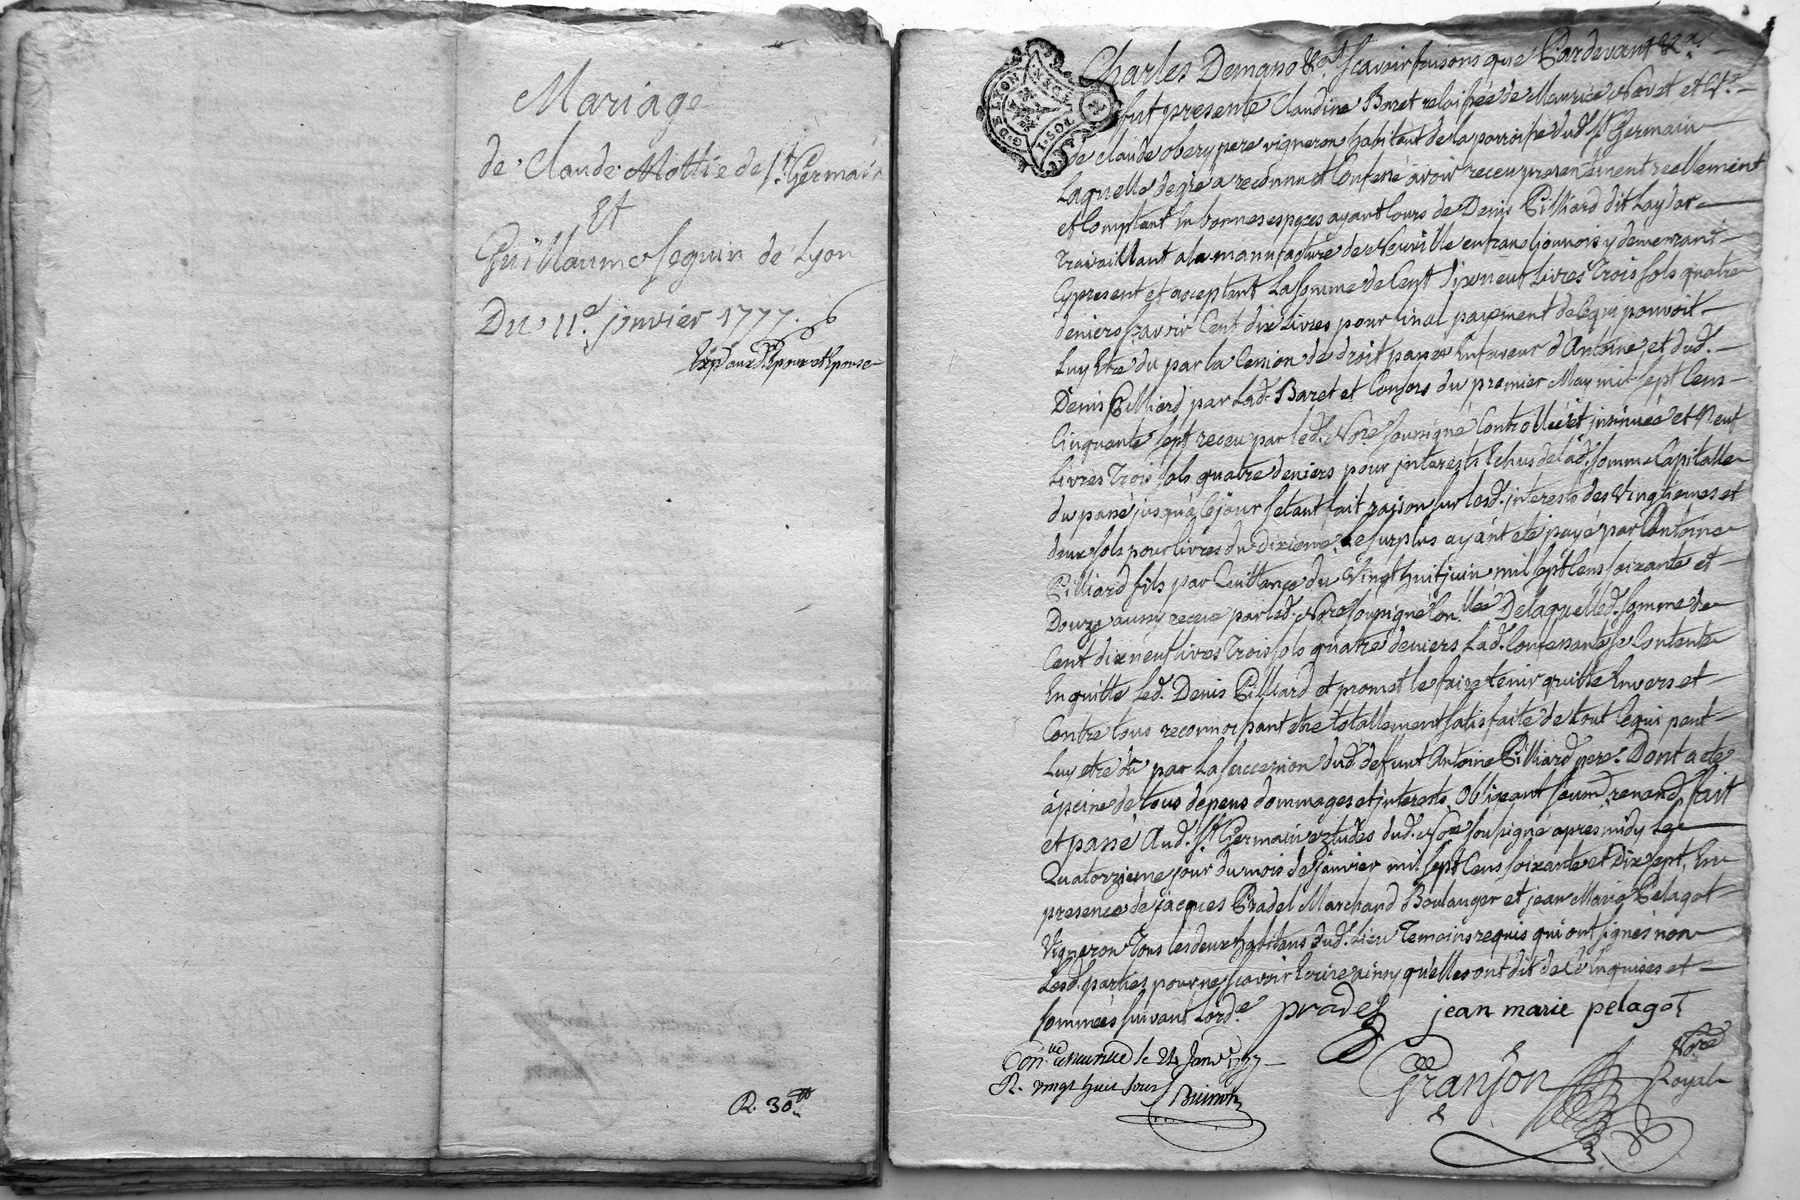 Mariage
de Claude Mottie de St. Germain
Et
Guillaume Seguin de Lyon
Du 11e. janvier 1777.
Exp. aux d. Epoux et Epouse
R. 30tt
G. DE LYON
Charles Demano &a. Scavoir faisons que Pardevant &a.
fut presente Claudine Baret relaissée de Maurice Novet et Ve.
de Claude obery pere vigneron habitant de la parroisse dud. St. Germain
Laquelle degré a reconnu et Confessé avoir receu presentement reellement
et Comptant En bonnes especes ayant Cours de Denis Pilliard dit Lay dor
travaillant a la manufacture de Neuville en franc lionnois y demeurant
Cy present et acceptant La somme de Cent dixneuf livres Trois sols quatre
deniers scavoir Cent dix Livres pour final paiement de Ce qui pouvoit
Luy Etre du par la Cession de droit passée En faveur d'Antoine et dud.
Denis Pilliard par Lad. Baret et Consors du premier May mil sept Cens
Cinquante sept receu par led. Nore. soussigné Controllée et insinuée et Neuf
Livres Trois sols quatre deniers pour interests Echus de lad. somme Capitalle
du passé jusquà Ce jour setant fait raison sur lesd. interests des Vingtiemes et
deux sols pour livres du dixieme Le surplus ayant eté payé par Antoine
Pilliard fils par Quittance du Vingt huit juin mil sept Cens soixante et
Douze aussy receue par led. Nore. soussigné Con.llée De laquelle d. somme de
Cent dixneuf livres Trois sols quatre deniers Lad. Confessante se Contente
En quitte Led. Denis Pilliard et promet le faire tenir quitte Envers et
Contre tous reconnoissant etre totallement satisfaite de tout Ce qui peut
Luy etre dû par La succession dud. defunt Antoine Pilliard pere. Dont acte
à peine de tous depens dommages et interests, obligeant soum. renond. fait
et passé Aud. St. Germain Etudes dud. Nore. soussigné apres midy Le
Quatorzieme jour du mois de Janvier mil sept Cens soixante et Dix sept, En
presence de jacques Pradel Marchand Boulanger et jean Marie Pelagot
Vigneron Tous les deux habitans dud. Lieu Temoins requis qui ont signés non
Lesd. parties pour ne scavoir Ecrire ainsy qu'elles ont dit de ce Enquises et
sommées suivant Lorde.
pradel
jean marie pelagot
Con.llé a Neuville le 24 Janv. 1777
R. vingt huit sous
Granjon
Nore.
Royal